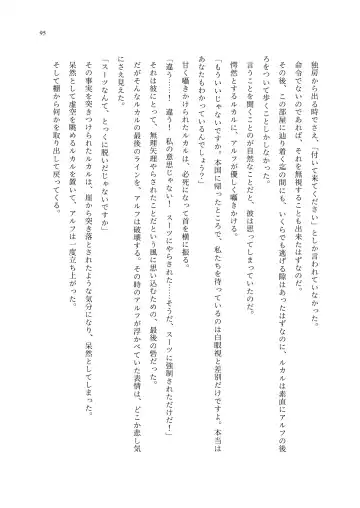 独房から出る時でさえ、「付いて来てください」としか言われていなかった。
命令でないのであれば、それを無視することも出来たはずなのだ。
その後、この部屋に辿り着く迄の間にも、いくらでも逃げる隙はあったはずなのに、ルカルは素直にアルフの後
ろをついて歩くことしかしなかった。
言うことを聞くことのが自然なことだと、彼は思ってしまっていたのだ。
愕然とするルカルに、アルフが優しく囁きかける。
「もういいじゃないですか。本国に帰ったところで、私たちを待っているのは白眼視と差別だけですよ。本当は
あなたもわかっているんでしょう？」
甘く囁きかけられたルカルは、必死になって首を横に振る。
「違う……！　違う！　私の意思じゃない！　スーツにやらされた……そうだ、スーツに強制されただけだ！」
それは彼にとって、無理矢理やらされたことだという風に思い込むための、最後の砦だった。
だがそんなルカルの最後のラインを、アルフは破壊する。その時のアルフが浮かべていた表情は、どこか悲し気
にさえ見えた。
「スーツなんて、とっくに脱いだじゃないですか」
その事実を突きつけられたルカルは、崖から突き落とされたような気分になり、呆然としてしまった。
呆然として虚空を眺めるルカルを置いて、アルフは一度立ち上がった。
そして棚から何かを取り出して戻ってくる。
95